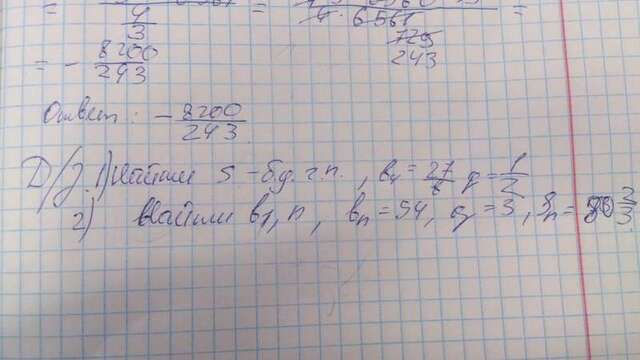 4/3 = 6561
729
= - 8200/243
243
Ответ: - 8200/243
Д/з. 1) Найти S - б.у.г.п., b₄ = 27/8 q = 1/2
2) Найти b₁, n, bₙ = 54, q = 3, Sₙ = 80 2/3